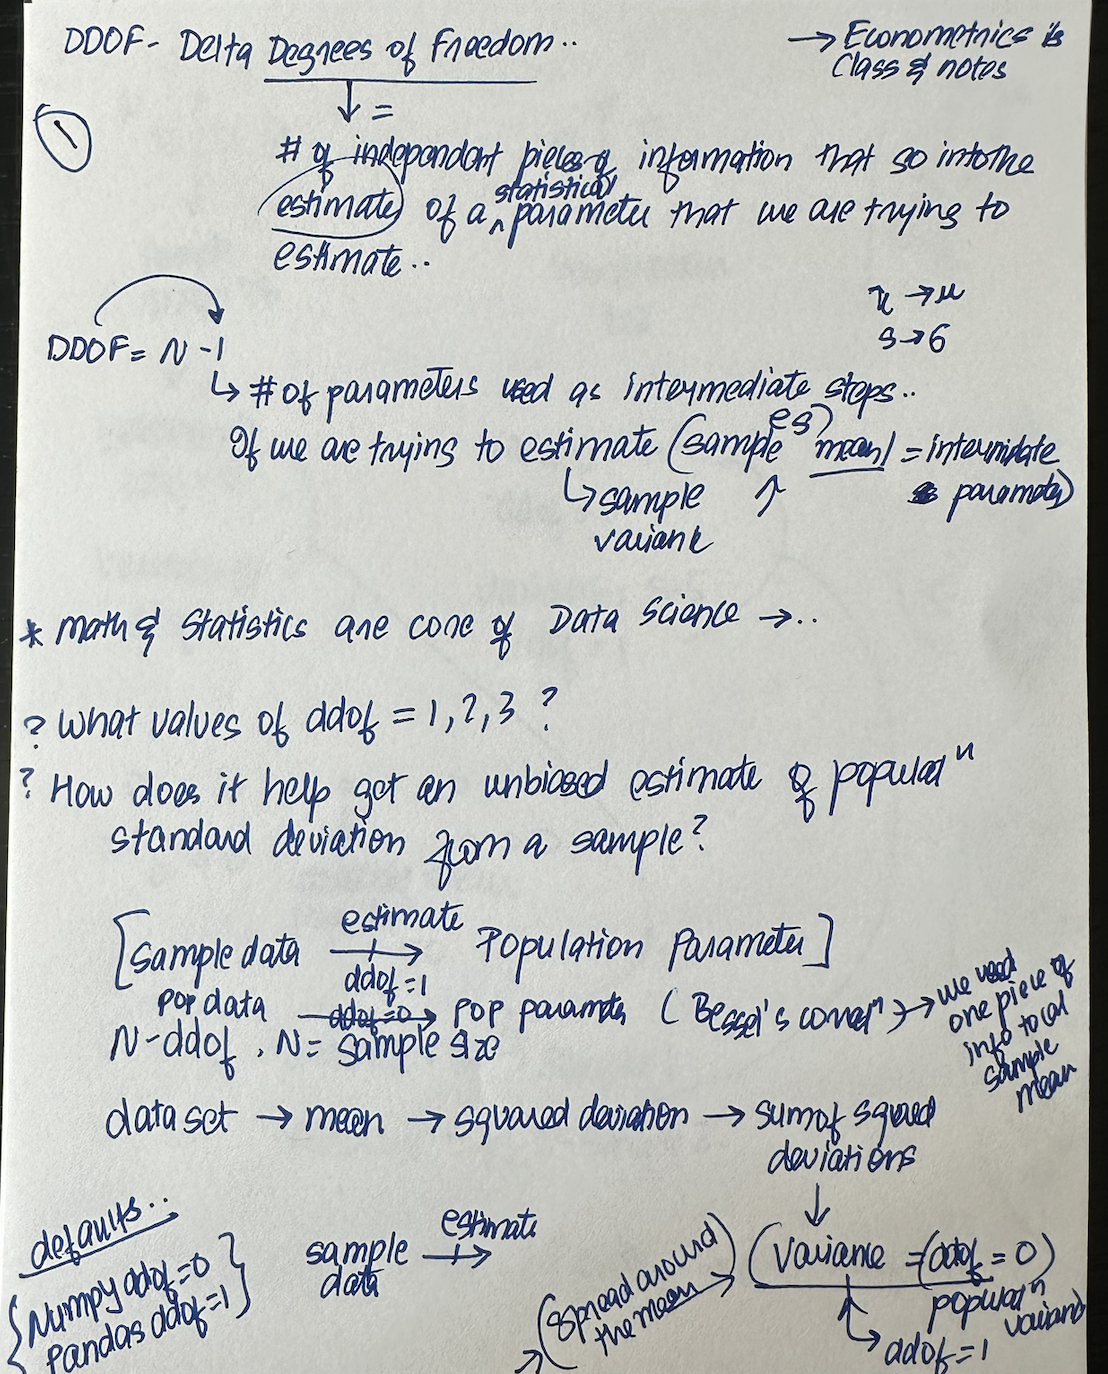 DDOF - Delta Degrees of Freedom..
→ Econometrics is
Class & notes
①
↓ =
# of independant pieces of information that go into the
estimate of a statistical parameter that we are trying to
estimate..
x̄ → μ
s → σ
DDOF = N - 1
↳ # of parameters used as intermediate steps..
If we are trying to estimate (sample es) mean = intermidate
↳ sample ↑ parameter)
variance
* Math & Statistics are core of Data Science → ..
? What values of ddof = 1, 2, 3 ?
? How does it help get an unbiased estimate of populatⁿ
standard deviation from a sample?
estimate
[Sample data → Population Parameter]
ddof=1
pop data ddof=0 → pop paramter (Bessel's correcⁿ) → we used
one piece of
info to cal
sample
mean
N-ddof, N = sample size
data set → mean → squared deviation → sum of squared
deviations
↓
defaults..
{Numpy ddof=0
Pandas ddof=1}
estimate
sample →
data
(Spread around
the mean →)
(Variance = (ddof = 0)
populatⁿ
variance
↳ ddof = 1